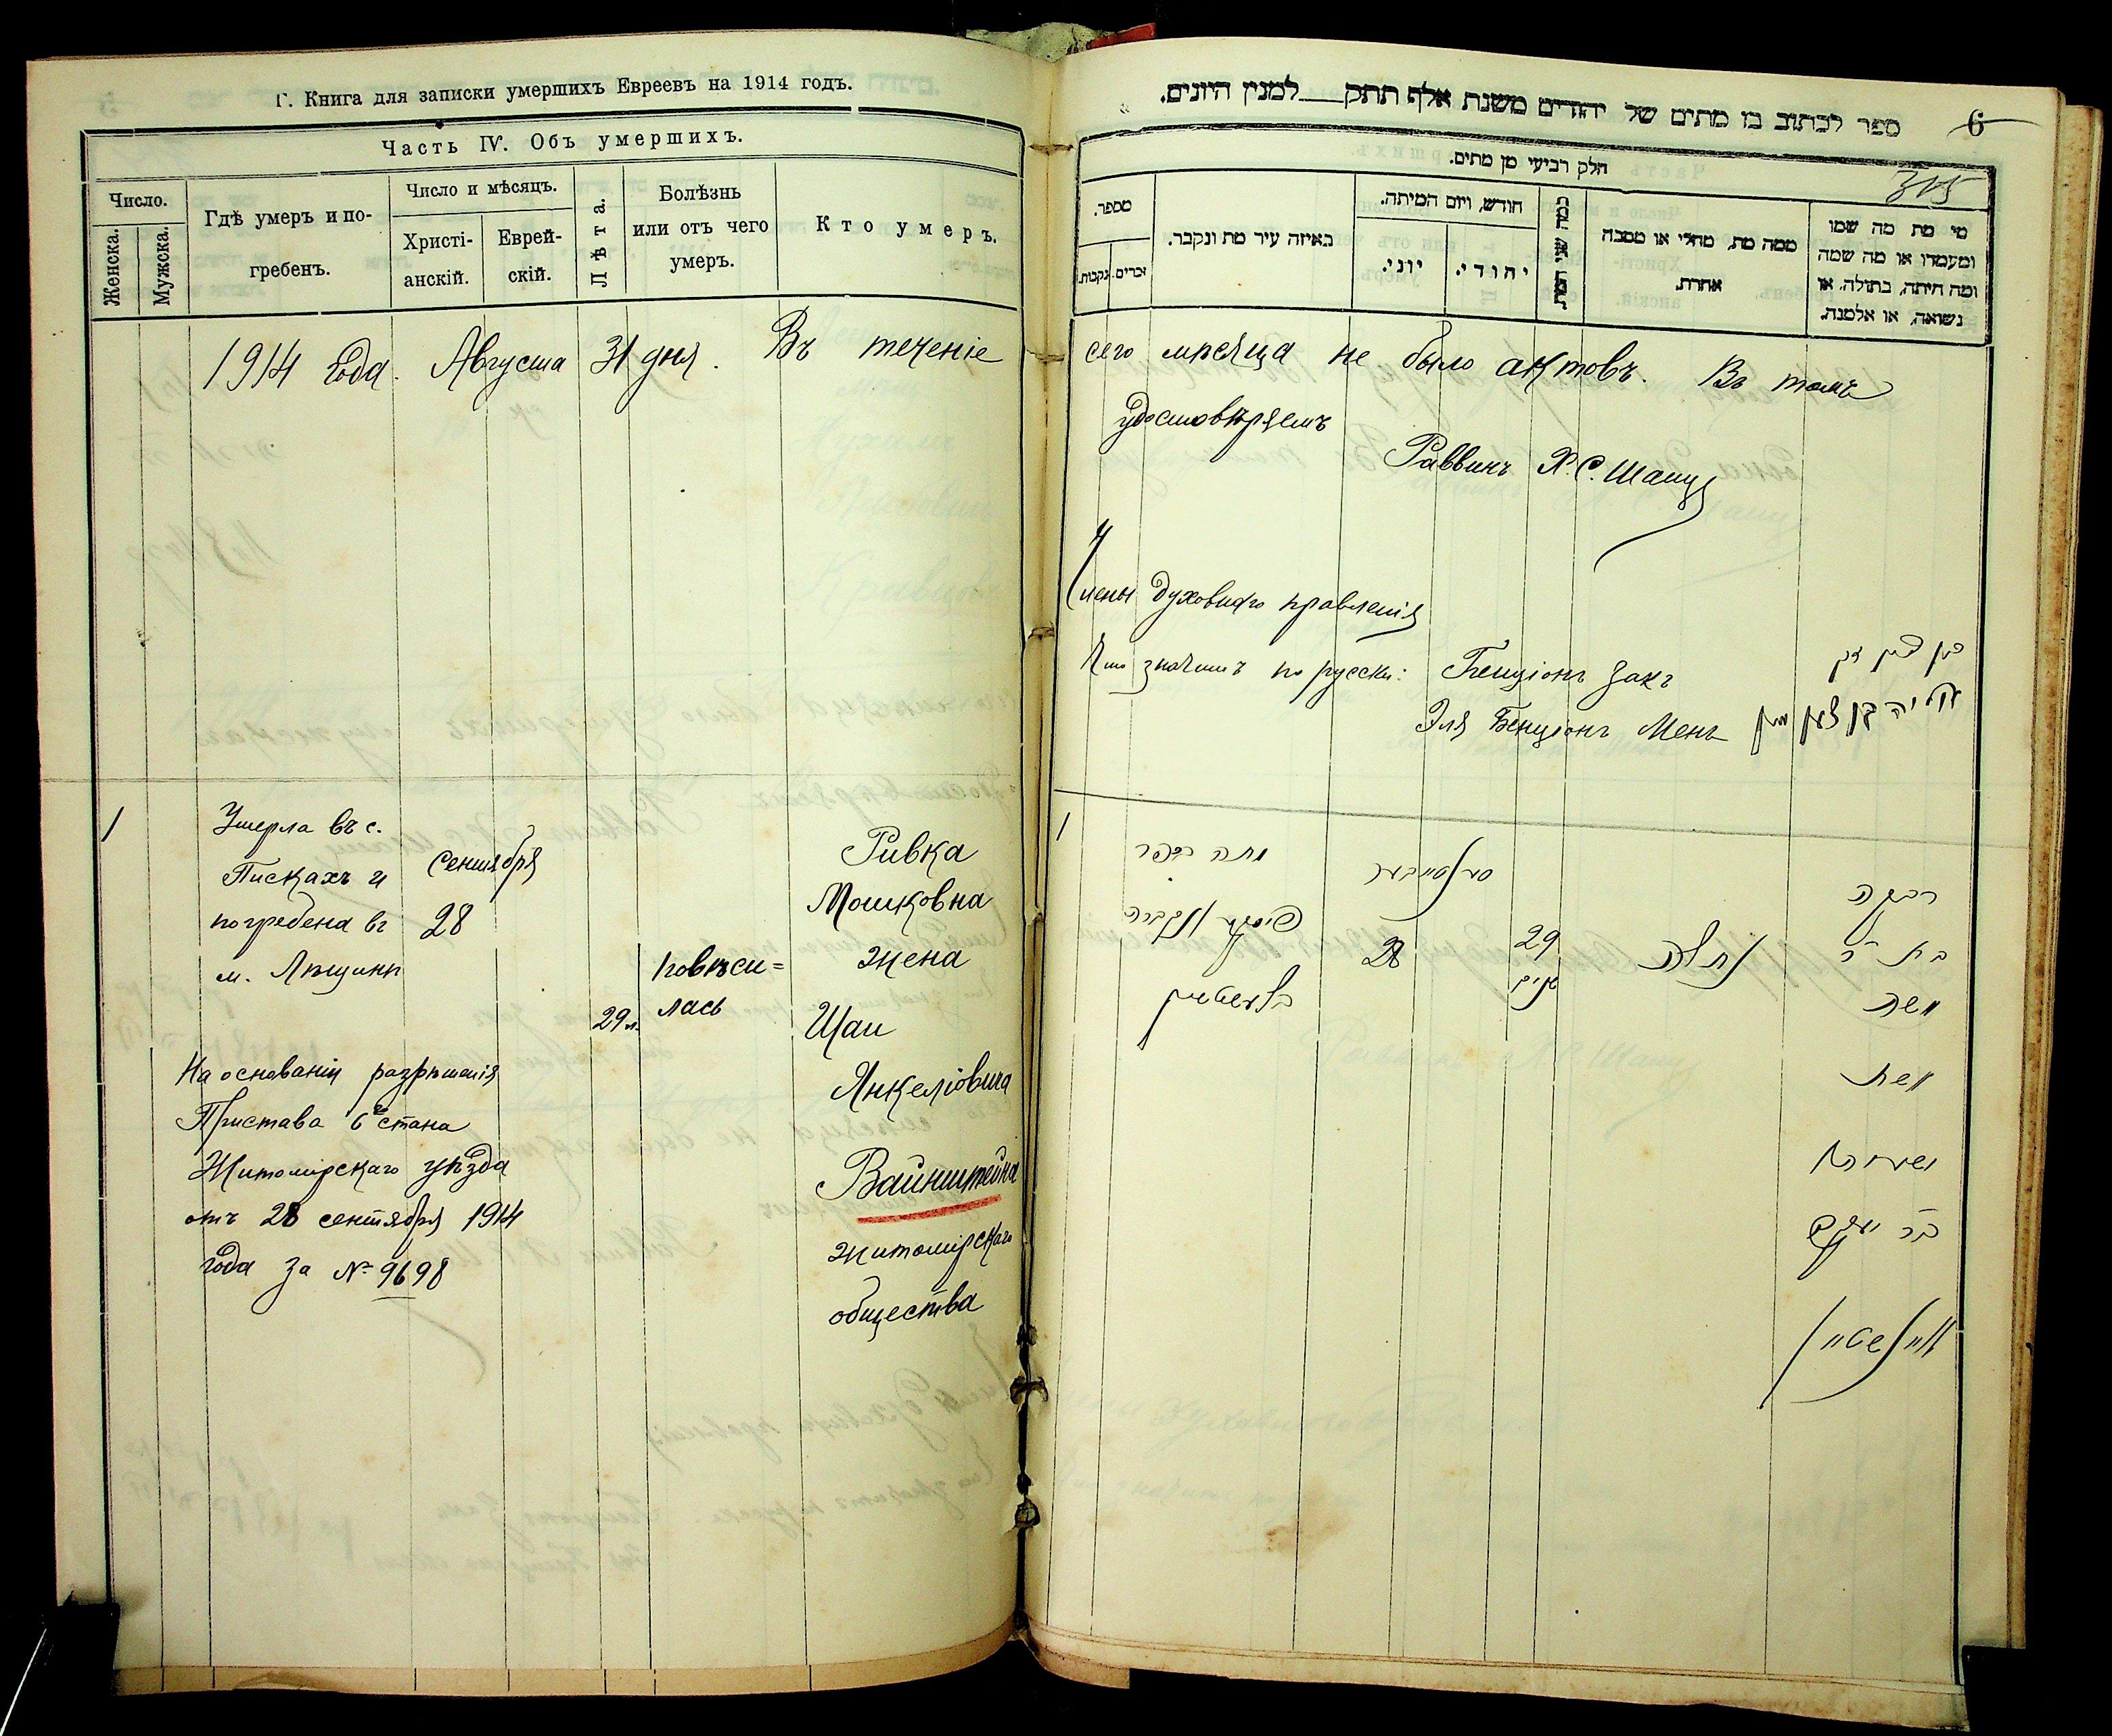 Г. Книга для записки умершихъ Евреевъ на 1914 годъ.
Часть IV. Объ умершихъ.
Число.
Женска.
Мужска.
Гдѣ умеръ и по-
гребенъ.
Число и мѣсяцъ.
Христі-
анскій.
Еврей-
скій.
Лѣта.
Болѣзнь
или отъ чего
умеръ.
Кто умеръ.
1914 года. Августа 31 дня. Въ теченіе
1
Умерла въ с.
Пискахъ и
погребена въ
м. Лѣщинѣ
Сентября
28
29 л.
повѣси=
лась
Ривка
Мошковна
жена
Шаи
Янкеліовича
Вайнштейна
житомірскаго
общества
На основаніи разрѣшенія
Пристава 6го стана
Житомірскаго уѣзда
отъ 28 сентября 1914
года за № 9698
ספר לכתוב בו מתים של יהודים משנת אלף תתק למנין היונים.
6
315
חלק רביעי מן מתים.
מספר.
זכרים.
נקבות.
באיזה עיר מת ונקבר.
חודש, ויום המיתה.
יוני.
יהודי.
כמה שני המת.
ממה מת, מחלי או מסבה
אחרת.
מי מת מה שמו
ומעמדו או מה שמה
ומה היתה, בתולה, או
נשואה, או אלמנה.
сего мѣсяца не было актовъ. Въ томъ
удостовѣряемъ
Раввинъ Х. С. Шапц
Члены духовнаго правленія
Что значитъ по русски: Бенціонъ Закъ
Эля Бенціонъ Менъ
1
מתה בכפר
28
29
שנים
רבקה
בת ר'
אשת